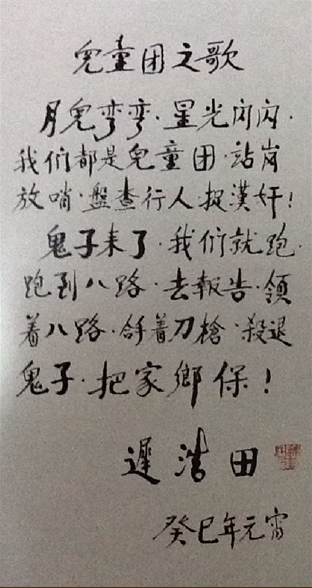 兒童团之歌
月兒弯弯·星光闪闪·
我们都是兒童团·站岗
放哨·盤查行人捉漢奸！
鬼子来了·我们就跑·
跑到八路·去報告·领
着八路·拿着刀槍·殺退
鬼子·把家鄉保！
遲浩田
癸巳年元宵